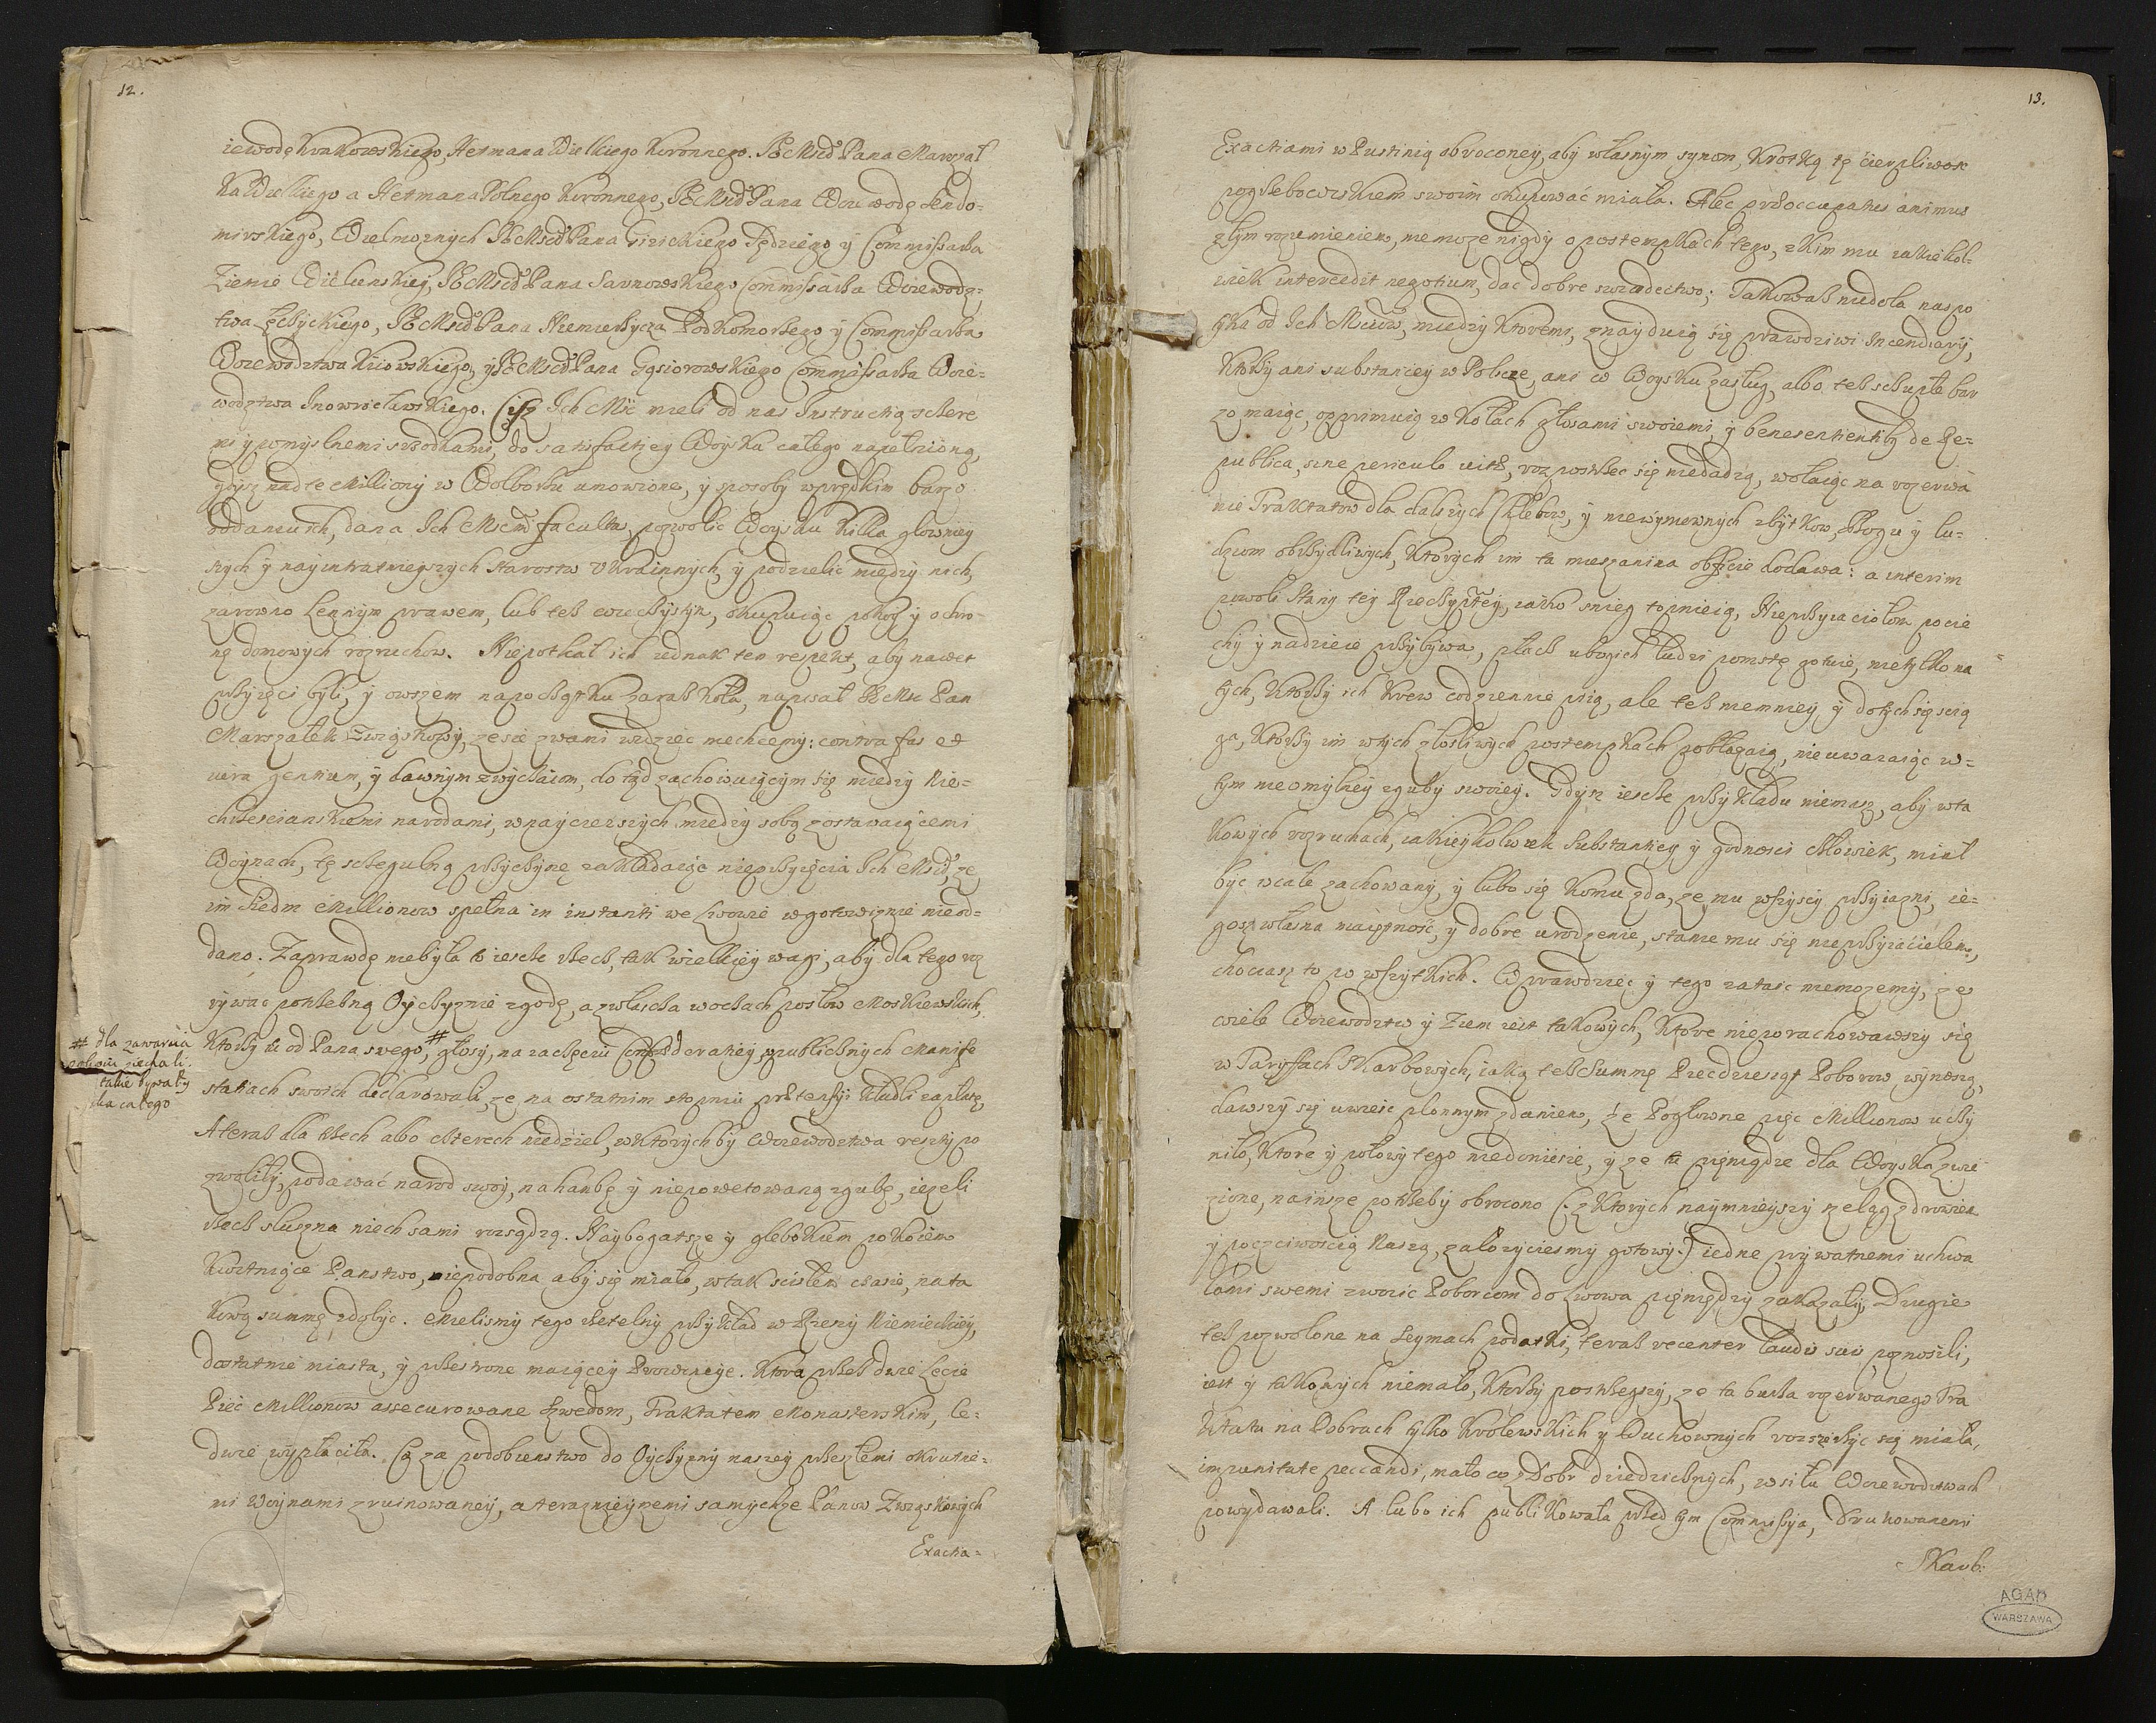 12.
iewodę Krakowskiego, Hetmana Wielkiego Koronnego. JEoMści Pana Marszał
ka Wielkiego a Hetmana Polnego Koronnego, JEoMści Pana Woiewodę Sendo-
mirskiego, Wielmoznych JEoMści Pana Giżickiego Sędziego y Commissarza
Ziemie Wieluńskiey, JEoMści Pana Sarnowskiego Commissarza Woiewodz-
twa Łęczyckiego, JEoMści Pana Niemierzyca Podkomorzego y Commissarza
Woiewodztwa Kiiowskiego, y JEoMści Pana Gąsiorowskiego Commissarza Woie-
wodztwa Inowrocławskiego. Ciż Ich Mść mieli od nas Instructią szczere
mi y pomyslnemi srzodkami, do satisfactiey Woyska całego napełnioną,
gdysz nad te Milliony w Wolborzu umowione, y sposoby w prędkim barzo
oddaniu ich, dana Ich Mściom facultas, pozwolic Woysku kilka głowniey
szych y nayintratnieyszych Starostw Ukrainnych, y podzielić miedzy nich,
zarowno Lennym prawem, lub tesz wieczystym, okupuiąc pokoy y ochro-
nę domowych rozruchow. Niepotkał ich iednak ten respekt, aby nawet
przyięci byli, y owszem na początku zaraz Koła, napisał JEoMść Pan
Marszałek Związkowy, ze sie z wami widziec niechcemy: contra fas et
iura gentium, y dawnym zwyczaiom, do tąd zachowuiącym się miedzy Nie-
chrzescianskiemi narodami, w nayczęszszych miedzy sobą zostawaiącemi
Woynach, tę szczegulną przyczynę zakładaiąc nieprzyięcia Ich Mściow, ze
im Siedm Millionow spełna in instanti we Lwowie w gotowiznie nieod-
dano. Zaprawdę niebyła to iescze rzecz, tak wielkiey wagi, aby dla tego roz
rywac potrzebną Oyczyznie zgodę, a zwłaszcza w oczach posłow Moskiewskich,
# dla zawarcia
pokoiu ziechali.
takie bywały
dla całego
Ktorzy tu od Pana swego, # głosy, na zaczęciu Confoederatiey, y publicznych Manife
statiach swoich declarowali, ze na ostatnim stopniu praetensyi kładli zapłatę,
A teraz dla trzech abo czterech niedziel, w ktorychby Woiewodztwa reszty po
zwoliły, podawać narod swoy, na hanbę y niepowetowaną zgubę, iezeli
rzecz słuszna niech sami rozsądzą. Naybogatsze y głębokiem pokoiem
Kwitnące Panstwo, niepodobna aby się miało, w tak scisłem czasie, na ta
kową summę zdobyc. Mielismy tego rzetelny przykład w Rzeszy Niemieckiey,
dostatnie miasta, y przestrone maiącey Prowincye. Ktora przez dwie Lecie
Pięć Millionow assecurowane Szwedom, Traktatem Monasterskim, le-
dwie wypłaciła. Co za podobienstwo do Oyczyzny naszey przeszłemi okrutne-
mi Woynami zruinowaney, a teraznieyszemi samychze Panow Związkowych
Exactia-
13.
Exactiami w Pustinią obroconey, aby własnym synom, krotką tę cierpliwosc
pogrzebowiskiem swoim okupować miała. Alec praeoccupatus animus
złym rozumieniem, niemoze nigdy o postempkach tego, z kim mu iakiekol-
wiek intercedit negotium, dac dobre swiadectwo; Takowasz niedola nas po
tyka od Ich Mciow, miedzy ktoremi, znayduią się prawdziwi Incendiary,
Ktorzy ani substanciey w Polscze, ani w Woysku zasług, albo tesz sczupłe bar
zo maiąc, opprimuią w Kołach głosami swoiemi, y benesentientib9 de Re-
publica, sine periculo vitae, roz postrzec się niedadzą, wołaiąc na rozerwa
nie Traktatow dla dalszych Chlebow, y niewymownych zbytkow, Bogu y lu-
dziom obrzydliwych, ktorych im ta mieszanina obficie dodawa: a interim
powoli Stany tey Rzeczyptey, iako snieg topnieią, Nieprzyiaciołom pocie
chy y nadzieie przybywa, płacz ubogich ludzi pomstę gotuie, nietylko na
tych, ktorzy ich krew codziennie piią, ale tesz niemniey y do tych się scią
ga, Ktorzy im w tych złosliwych postempkach pobłazaią, nieuwazaiąc w-
tym nieomylney zguby swoiey. Gdysz iescze przykładu niemasz, aby w ta
kowych rozruchach, iakieykolwiek Substantiey y godnosci człowiek, miał
być wcale zachowany, y lubo się komu zda, ze mu wszyscy przyiazni, ie-
gosz własna maiętność, y dobre urodzenie, stanie mu się nieprzyiacielem,
chociasz to po wszytkich. Wprawdziec y tego zataic niemozemy, ze
wiele Woiewodztw y Ziem iest takowych, ktore nieporachowawszy się
w Taryffach Skarbowych, iaką tesz Summę Piecdziesiąt Poborow wynoszą,
dawszy się uwiesc płonnym zdaniem, że Pogłowne pięc Millionow uczy
niło, ktore y połowy tego niedoniesie, y ze te pieniądze dla Woyska zwie
zione, na insze potrzeby obrocono (: z ktorych naymnieyszy szeląg zdrowiem
y poczciwoscią Naszą, załozyciesmy gotowy:) iedne prywatnemi uchwa
łami swemi zwozic Poborcom do Lwowa pieniędzy zakazały, Drugie
tesz pozwolone na Seymach podatki, teraz recenter Laudis suis poznosili,
iest y takowych niemało, ktorzy postrzegszy, ze ta burza rozerwanego Tra
ktatu na Dobrach tylko Krolewskich y Duchownych rozszerzyc się miała,
impunitate peccandi, mało co z Dobr dziedzicznych, w siłu Woiewodztwach
powydawali. A lubo ich publikowała przed tym Commissya, drukowanemi
Skarb:
AGAD
WARSZAWA